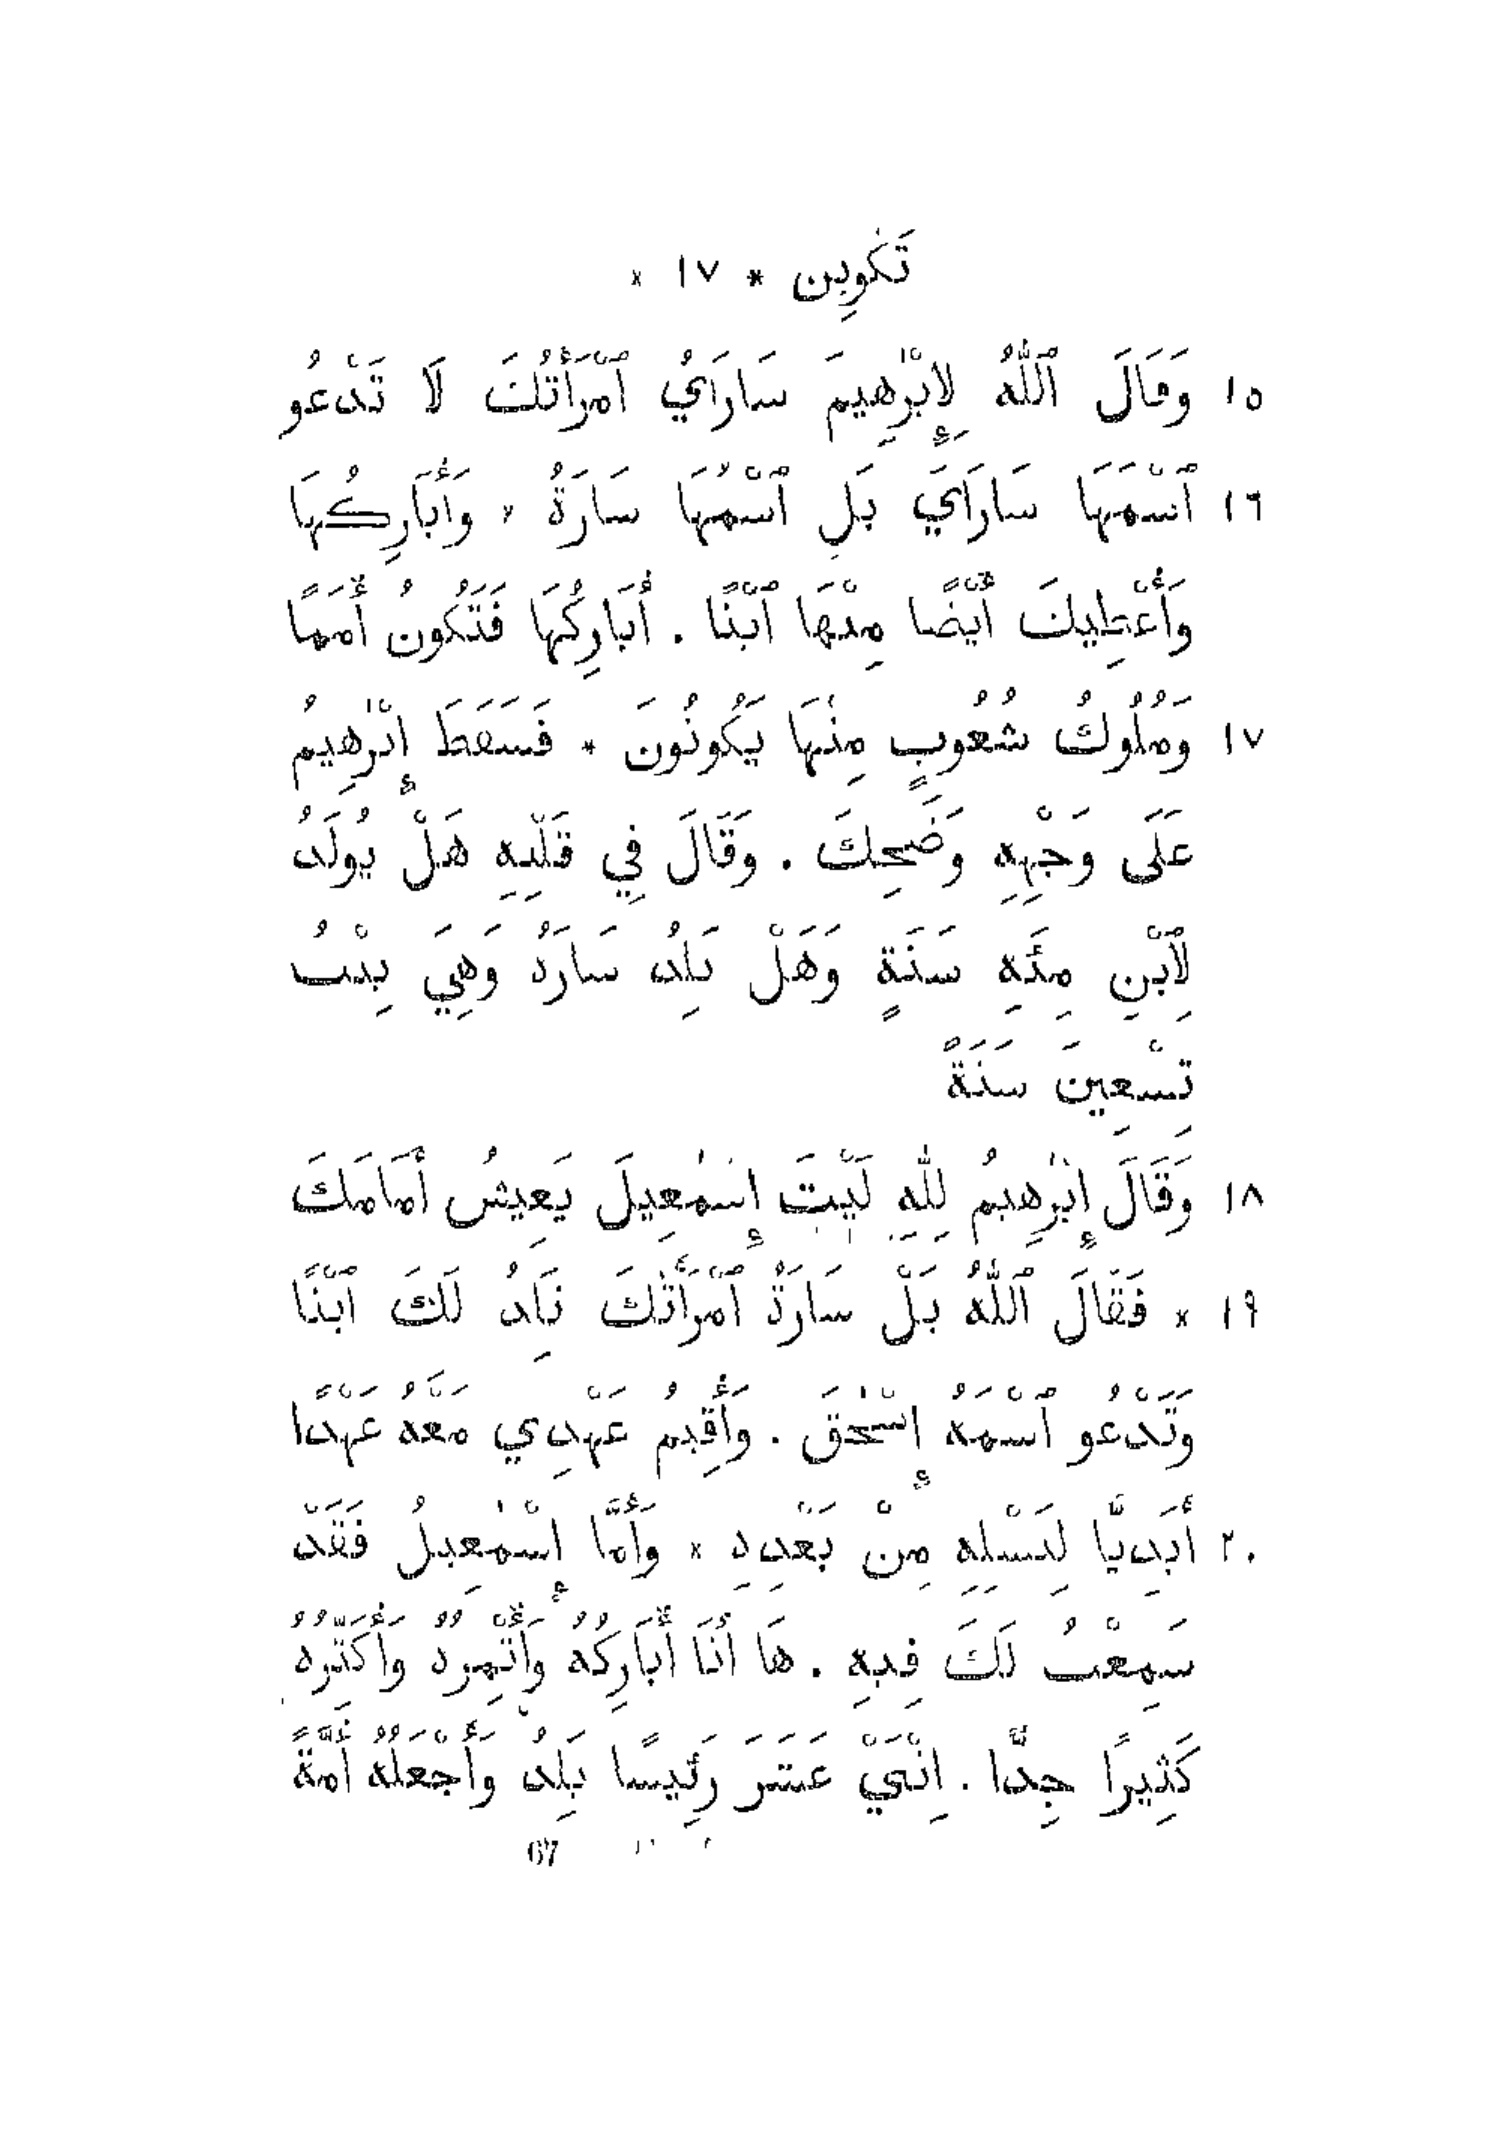 تَكْوِين * ١٧ *
١٥ وَقَالَ ٱللّٰهُ لِإِبْرٰهِيمَ سَارَايُ ٱمْرَأَتُكَ لَا تَدْعُو
١٦ ٱسْمَهَا سَارَايَ بَلِ ٱسْمُهَا سَارَةُ * وَأُبَارِكُهَا
وَأُعْطِيكَ أَيْضًا مِنْهَا ٱبْنًا . أُبَارِكُهَا فَتَكُونُ أُمَمًا
١٧ وَمُلُوكُ شُعُوبٍ مِنْهَا يَكُونُونَ * فَسَقَطَ إِبْرٰهِيمُ
عَلَى وَجْهِهِ وَضَحِكَ . وَقَالَ فِي قَلْبِهِ هَلْ يُولَدُ
لِٱبْنِ مِئَةِ سَنَةٍ وَهَلْ تَلِدُ سَارَةُ وَهِيَ بِنْتُ
تِسْعِينَ سَنَةً
١٨ وَقَالَ إِبْرٰهِيمُ لِلّٰهِ لَيْتَ إِسْمٰعِيلَ يَعِيشُ أَمَامَكَ
١٩ * فَقَالَ ٱللّٰهُ بَلْ سَارَةُ ٱمْرَأَتُكَ تَلِدُ لَكَ ٱبْنًا
وَتَدْعُو ٱسْمَهُ إِسْحٰقَ . وَأُقِيمُ عَهْدِي مَعَهُ عَهْدًا
٢٠ أَبَدِيًّا لِنَسْلِهِ مِنْ بَعْدِهِ * وَأَمَّا إِسْمٰعِيلُ فَقَدْ
سَمِعْتُ لَكَ فِيهِ . هَا أَنَا أُبَارِكُهُ وَأُثْمِرُهُ وَأُكَثِّرُهُ
كَثِيرًا جِدًّا . اِثْنَيْ عَشَرَ رَئِيسًا يَلِدُ وَأَجْعَلُهُ أُمَّةً
67